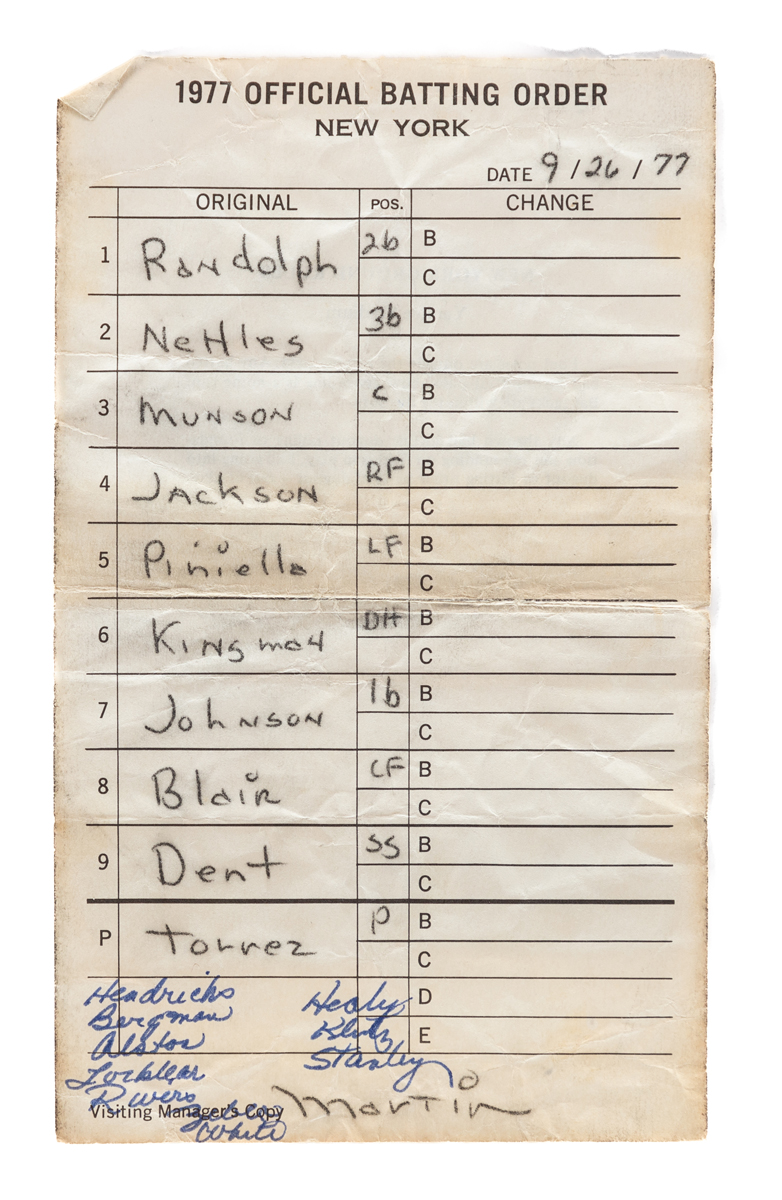 1977 OFFICIAL BATTING ORDER
NEW YORK
DATE 9 / 26 / 77
ORIGINAL POS. CHANGE
1 Randolph 2b B
C
2 Nettles 3b B
C
3 MUNSON C B
C
4 JACKSON RF B
C
5 Piniella LF B
C
6 Kingman DH B
C
7 Johnson 1b B
C
8 Blair CF B
C
9 Dent SS B
C
P Torrez P B
C
Hendricks Healy D
Bergman Klutz E
Alston Stanley
Locklear
Rivers
Visiting Manager's Copy Martin
White